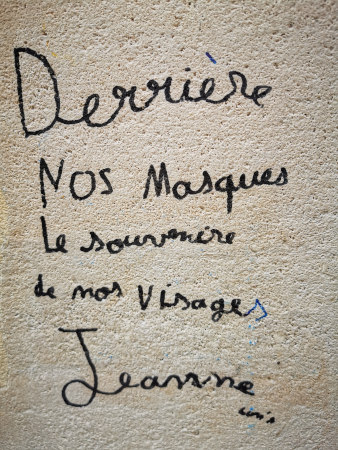 Derrière
Nos Masques
Le souvenire
de nos visages
Jeanne